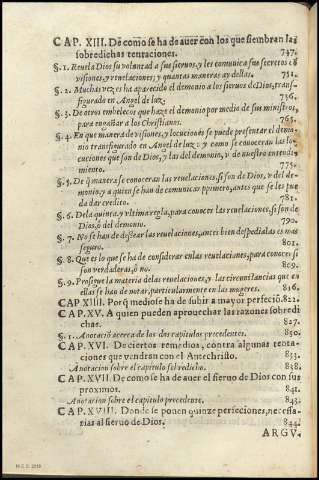 CAP. XIII. De como se ha de auer con los que siembran las
sobredichas tentaciones. 747.
§. 1. Reuela Dios su voluntad a sus sieruos, y les comunica sus secretos en
visiones, y reuelaciones; y quantas maneras ay dellas. 751.
§. 2. Muchas vezes ha aparecido el demonio a los sieruos de Dios, trans-
figurado en Angel de luz. 756.
§. 3. De otros embelecos que haze el demonio por medio de sus ministros,
para engañar a los Christianos. 765.
§. 4. En que manera de visiones, y locuciones se puede presentar el demo-
nio transfigurado en Angel de luz: y como se conoceran las lo-
cuciones que son de Dios, y las del demonio, y de nuestro entendi-
miento. 775.
§. 5. De q̃ manera se conoceran las reuelaciones, si son de Dios, v del de-
monio, y a quien se han de comunicar primero, antes que se les pue
da dar credito. 781.
§. 6. De la quinta, y vltima regla, para conocer las reuelaciones, si son de
Dios, ò del demonio. 790.
§. 7. No se han de dessear las reuelaciones, antes bien despedirlas es mas
seguro. 801.
§. 8. Que es lo que se ha de considerar en las reuelaciones, para conocer si
son verdaderas, ò no. 809.
§. 9. Prosigue la materia de las reuelaciones, y las circunstancias que en
ellas se han de notar, particularmente en las mugeres. 816.
CAP XIIII. Porq̃ medios se ha de subir a mayor perfeciō. 822.
CAP. XV. A quien pueden aprouechar las razones sobredi
chas. 827.
§. 1. Anotaciō acerca de los dos capitulos precedentes. 830.
CAP. XVI. De ciertos remedios, contra algunas tenta-
ciones que vendran con el Antechristo. 833.
Anotacion sobre el capitulo sobredicho. 838.
CAP. XVII. De como se ha de auer el sieruo de Dios con sus
proximos. 841.
Anotacion sobre el capitulo precedente. 843.
CAP. XVIII. Donde se ponen quinze perfeciones, necessa-
rias al sieruo de Dios. 844.
ARGV-